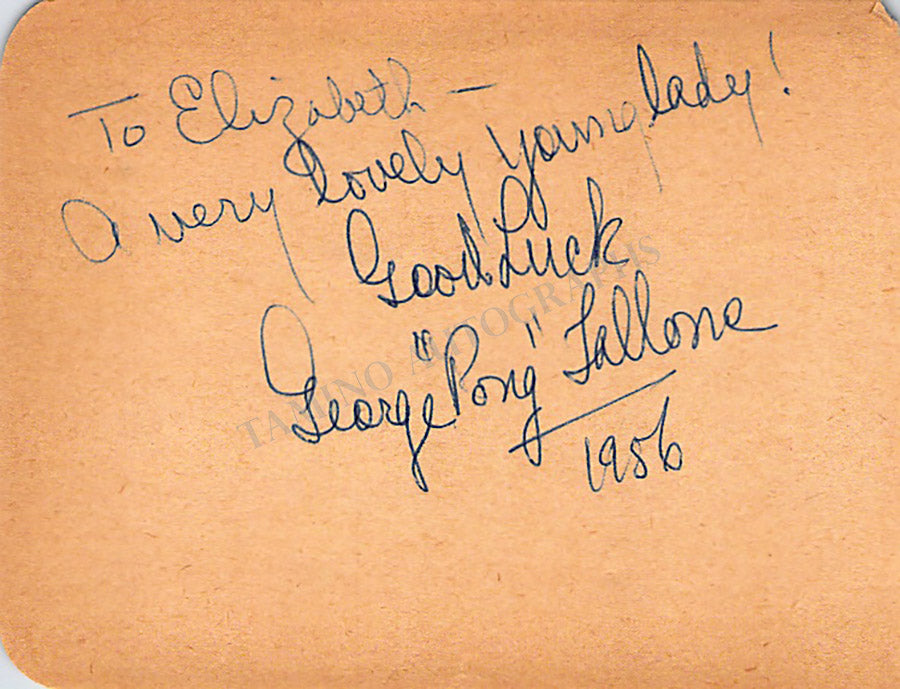 To Elizabeth —
A very lovely young lady!
Good Luck
George "Pong" Fallone
1956
TAMINO AUTOGRAPHS